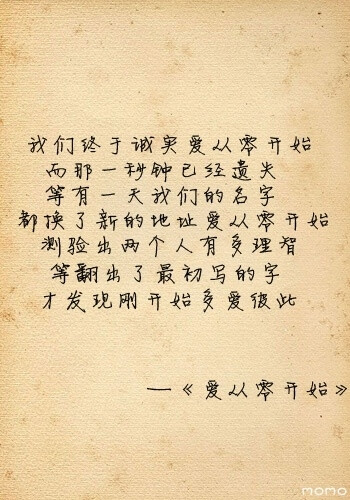 我们终于诚实爱从零开始
而那一秒钟已经遗失
等有一天我们的名字
都换了新的地址爱从零开始
测验出两个人有多理智
等翻出了最初写的字
才发现刚开始多爱彼此
—《爱从零开始》
momo